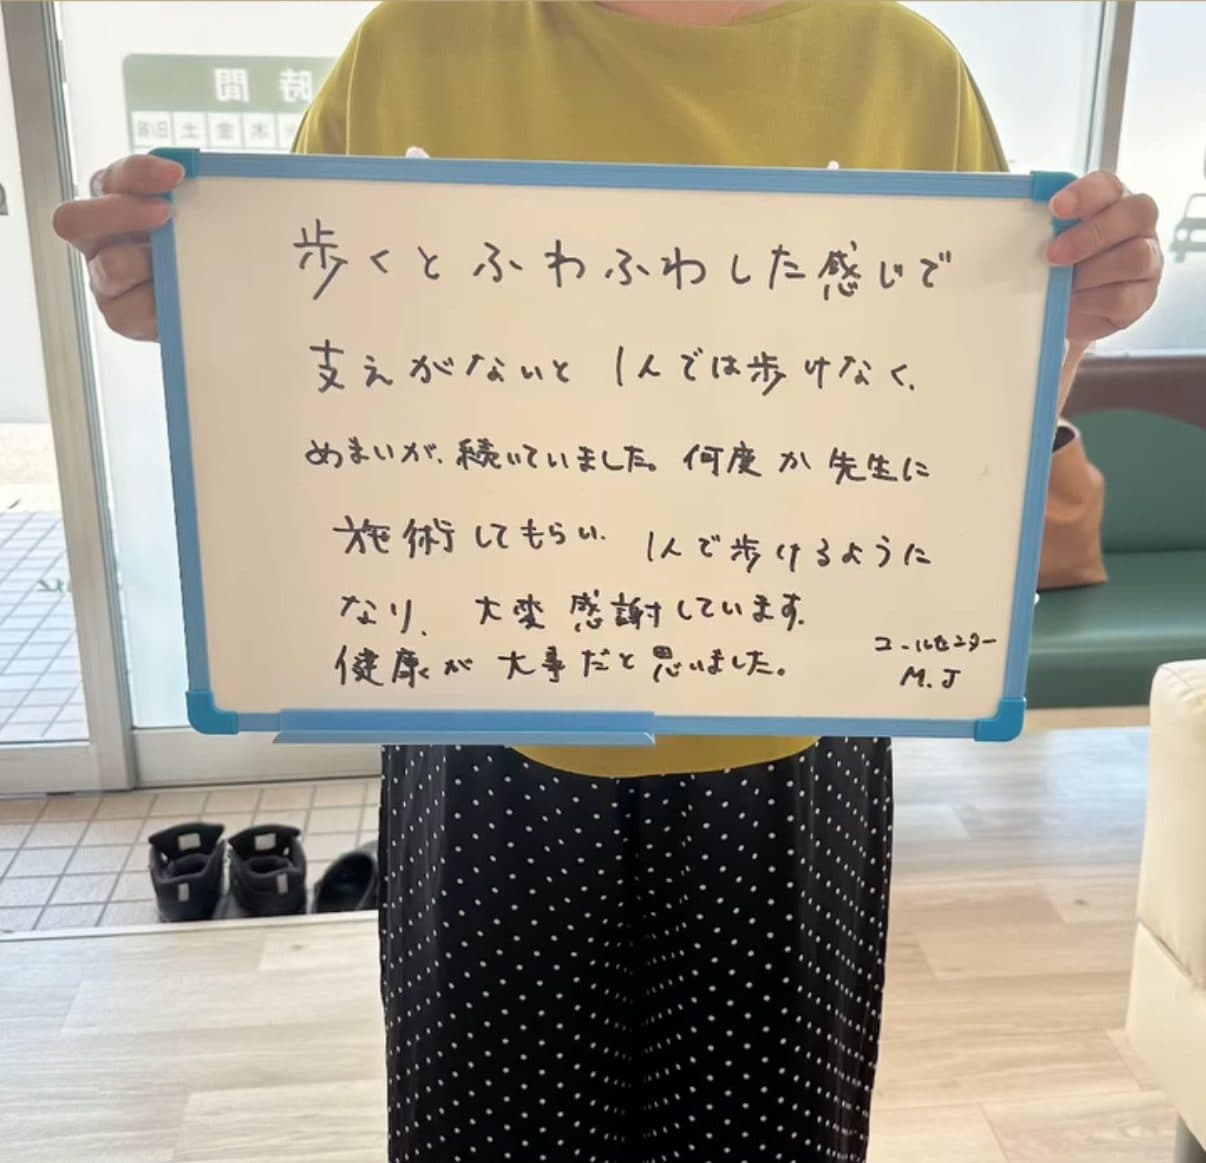 時間
木 金 土 日/祝
歩くとふわふわした感じで
支えがないと 1人では歩けなく、
めまいが、続いていました。何度か先生に
施術してもらい、1人で歩けるように
なり、大変感謝しています。
健康が大事だと思いました。
コールセンター
M.J